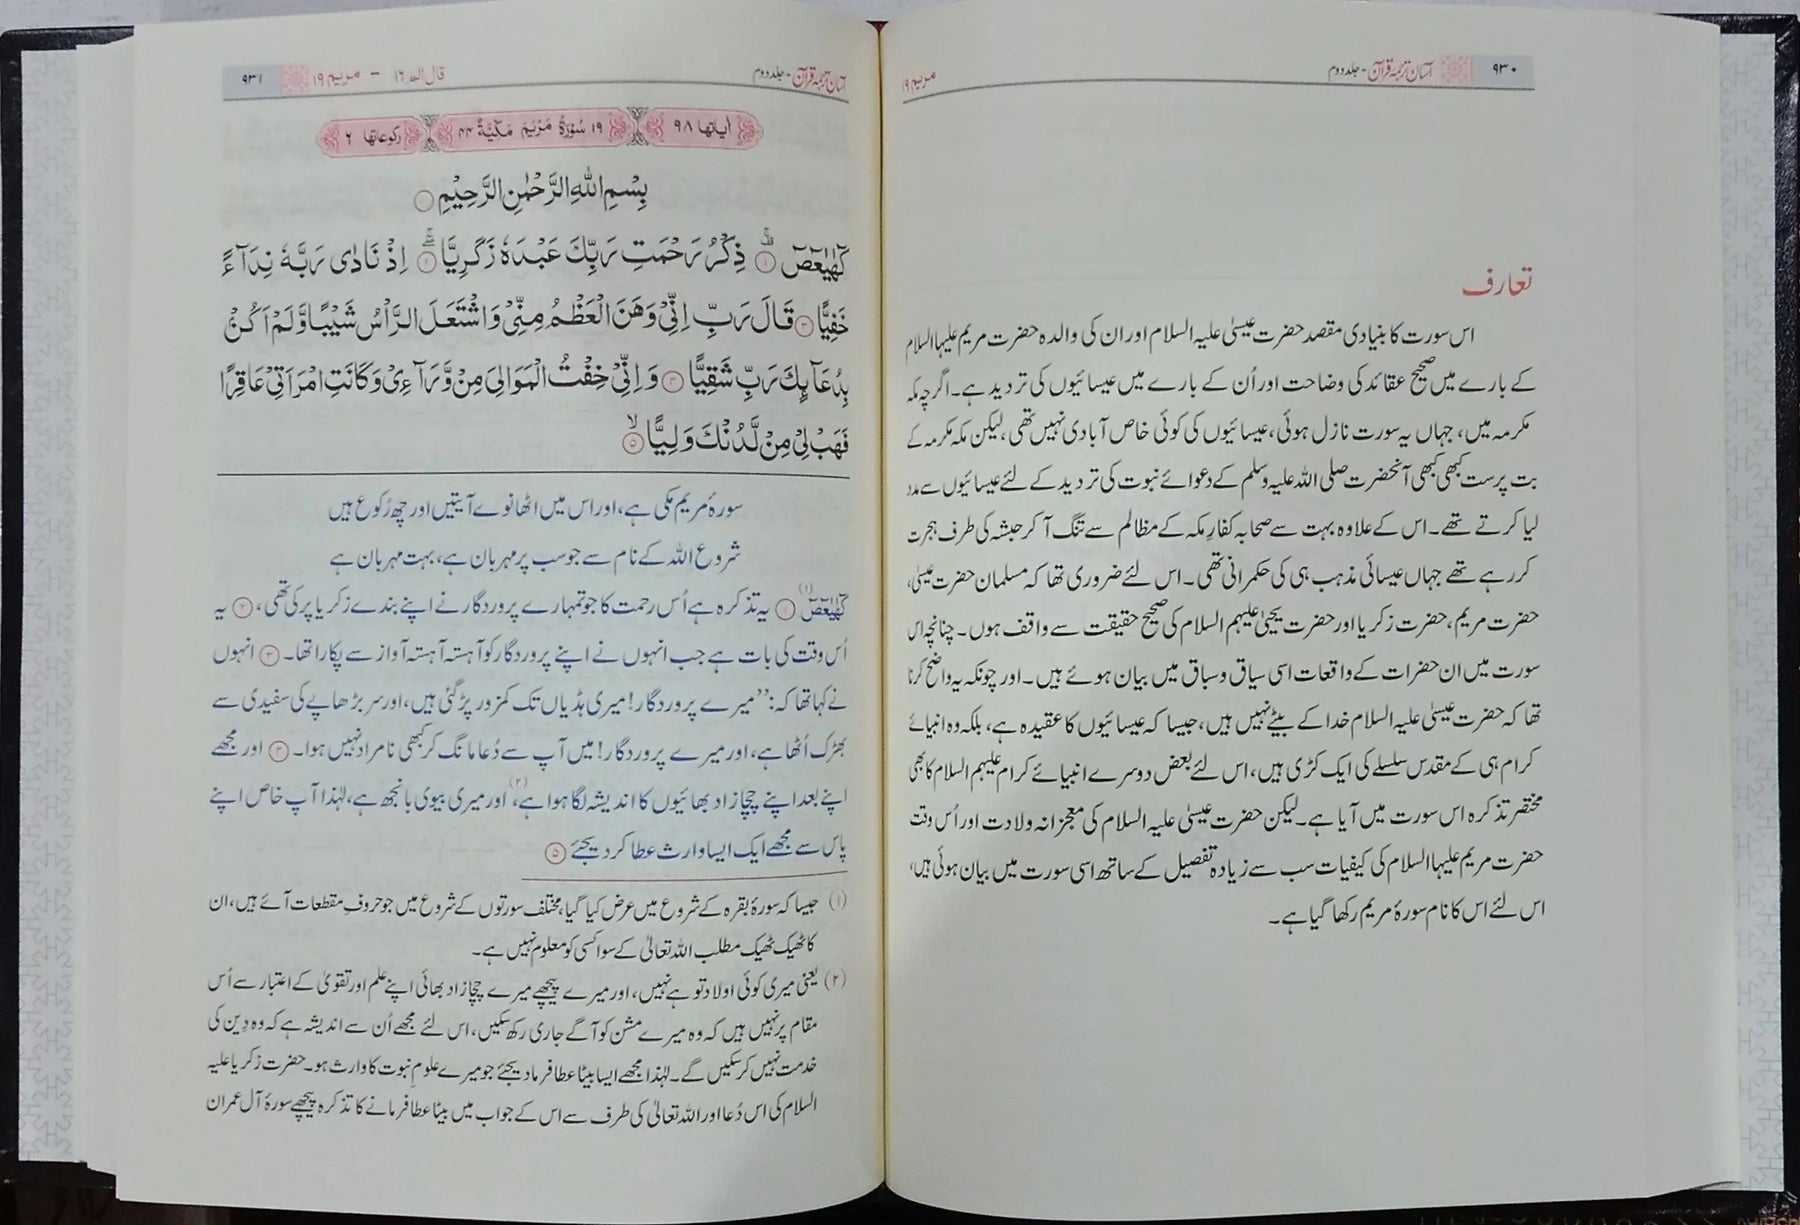 ۹۳۰ آسان ترجمۂ قرآن - جلد دوم مریم ۱۹
تعارف
اس سورت کا بنیادی مقصد حضرت عیسیٰ علیہ السلام اور ان کی والدہ حضرت مریم علیہا السلام
کے بارے میں صحیح عقائد کی وضاحت اور اُن کے بارے میں عیسائیوں کی تردید ہے۔ اگرچہ مکہ
مکرمہ میں، جہاں یہ سورت نازل ہوئی، عیسائیوں کی کوئی خاص آبادی نہیں تھی، لیکن مکہ مکرمہ کے
بت پرست کبھی کبھی آنحضرت صلی اللہ علیہ وسلم کے دعوائے نبوت کی تردید کے لئے عیسائیوں سے مدد
لیا کرتے تھے۔ اس کے علاوہ بہت سے صحابہ کفارِ مکہ کے مظالم سے تنگ آ کر حبشہ کی طرف ہجرت
کر رہے تھے جہاں عیسائی مذہب ہی کی حکمرانی تھی۔ اس لئے ضروری تھا کہ مسلمان حضرت عیسیٰ،
حضرت مریم، حضرت زکریا اور حضرت یحییٰ علیہم السلام کی صحیح حقیقت سے واقف ہوں۔ چنانچہ اس
سورت میں ان حضرات کے واقعات اسی سیاق و سباق میں بیان ہوئے ہیں۔ اور چونکہ یہ واضح کرنا
تھا کہ حضرت عیسیٰ علیہ السلام خدا کے بیٹے نہیں ہیں، جیسا کہ عیسائیوں کا عقیدہ ہے، بلکہ وہ انبیائے
کرام ہی کے مقدس سلسلے کی ایک کڑی ہیں، اس لئے بعض دوسرے انبیائے کرام علیہم السلام کا بھی
مختصر تذکرہ اس سورت میں آیا ہے۔ لیکن حضرت عیسیٰ علیہ السلام کی معجزانہ ولادت اور اُس وقت
حضرت مریم علیہا السلام کی کیفیات سب سے زیادہ تفصیل کے ساتھ اسی سورت میں بیان ہوئی ہیں،
اس لئے اس کا نام سورۂ مریم رکھا گیا ہے۔
آسان ترجمۂ قرآن - جلد دوم قال الم ۱۶ - مریم ۱۹ ۹۳۱
اٰیاتها ۹۸ ۱۹ سُوْرَةُ مَرْيَمَ مَكِّيَّةٌ ۴۴ رکوعاتها ۶
بِسْمِ اللّٰهِ الرَّحْمٰنِ الرَّحِيْمِ
كٓهٰيٰعٓصٓ ۱ ذِكْرُ رَحْمَتِ رَبِّكَ عَبْدَهٗ زَكَرِيَّا ۲ اِذْ نَادٰى رَبَّهٗ نِدَآءً
خَفِيًّا ۳ قَالَ رَبِّ اِنِّيْ وَهَنَ الْعَظْمُ مِنِّيْ وَاشْتَعَلَ الرَّاْسُ شَيْبًا وَّلَمْ اَكُنْۢ
بِدُعَآئِكَ رَبِّ شَقِيًّا ۴ وَاِنِّيْ خِفْتُ الْمَوَالِيَ مِنْ وَّرَآءِيْ وَكَانَتِ امْرَاَتِيْ عَاقِرًا
فَهَبْ لِيْ مِنْ لَّدُنْكَ وَلِيًّا ۵
سورۂ مریم مکی ہے، اور اس میں اٹھانوے آیتیں اور چھ رُکوع ہیں
شروع اللہ کے نام سے جو سب پر مہربان ہے، بہت مہربان ہے
كٓهٰيٰعٓصٓ (۱) ۱ یہ تذکرہ ہے اُس رحمت کا جو تمہارے پروردگار نے اپنے بندے زکریا پر کی تھی، ۲ یہ
اُس وقت کی بات ہے جب انہوں نے اپنے پروردگار کو آہستہ آہستہ آواز سے پکارا تھا۔ ۳ انہوں
نے کہا تھا کہ: ”میرے پروردگار! میری ہڈیاں تک کمزور پڑ گئی ہیں، اور سر بڑھاپے کی سفیدی سے
بھڑک اُٹھا ہے، اور میرے پروردگار! میں آپ سے دُعا مانگ کر کبھی نامراد نہیں ہوا۔ ۴ اور مجھے
اپنے بعد اپنے چچا زاد بھائیوں کا اندیشہ لگا ہوا ہے، (۲) اور میری بیوی بانجھ ہے، لہٰذا آپ خاص اپنے
پاس سے مجھے ایک ایسا وارث عطا کر دیجئے ۵
(۱) جیسا کہ سورۂ بقرہ کے شروع میں عرض کیا گیا، مختلف سورتوں کے شروع میں جو حروفِ مقطعات آئے ہیں، ان
کا ٹھیک ٹھیک مطلب اللہ تعالیٰ کے سوا کسی کو معلوم نہیں ہے۔
(۲) یعنی میری کوئی اولاد تو ہے نہیں، اور میرے پیچھے میرے چچا زاد بھائی اپنے علم اور تقویٰ کے اعتبار سے اُس
مقام پر نہیں ہیں کہ وہ میرے مشن کو آگے جاری رکھ سکیں، اس لئے مجھے اُن سے اندیشہ ہے کہ وہ دِین کی
خدمت نہیں کر سکیں گے۔ لہٰذا مجھے ایسا بیٹا عطا فرما دیجئے جو میرے علومِ نبوت کا وارث ہو۔ حضرت زکریا علیہ
السلام کی اس دُعا اور اللہ تعالیٰ کی طرف سے اس کے جواب میں بیٹا عطا فرمانے کا تذکرہ پیچھے سورۂ آل عمران